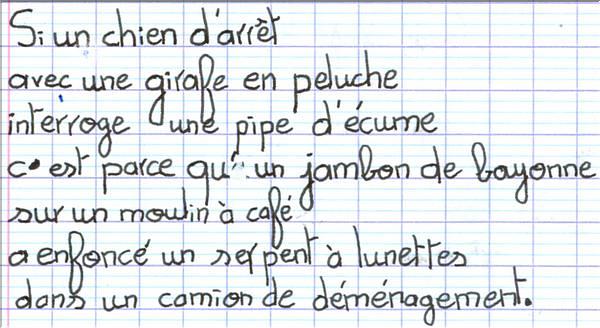 Si un chien d'arrêt
avec une girafe en peluche
interroge une pipe d'écume
c'est parce qu'un jambon de bayonne
sur un moulin à café
a enfoncé un serpent à lunettes
dans un camion de déménagement.